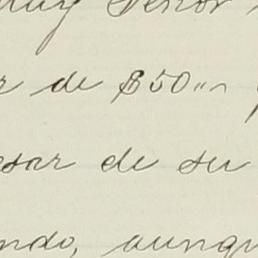 muy Señor
r de $50"
sar de su
ndo, aunqu